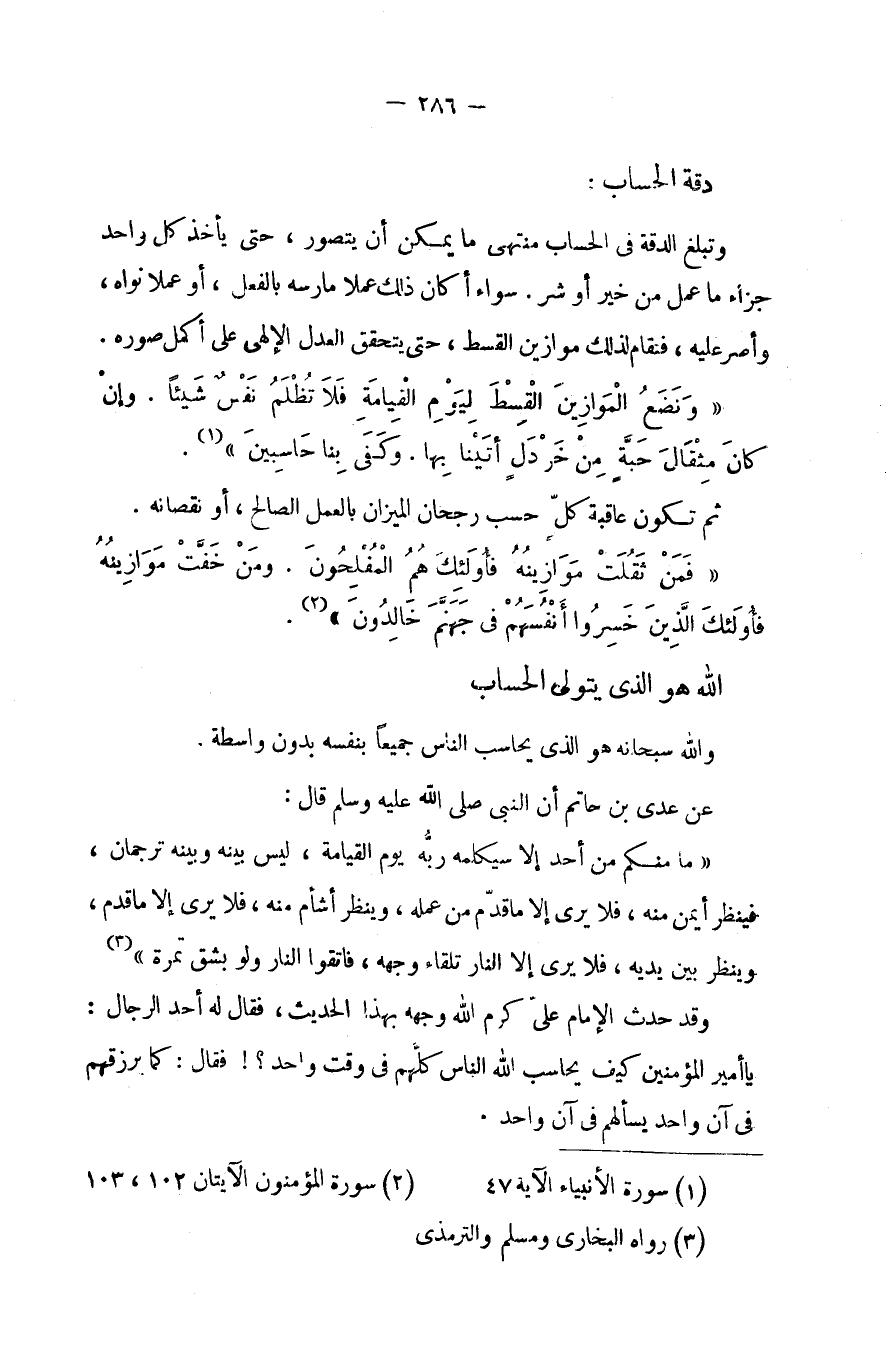 — ٢٨٦ —
دقة الحساب :
وتبلغ الدقة فى الحساب منتهى ما يمكن أن يتصور ، حتى يأخذ كل واحد
جزاء ما عمل من خير أو شر . سواء أكان ذلك عملا مارسه بالفعل ، أو عملا نواه ،
وأصر عليه ، فتقام لذلك موازين القسط ، حتى يتحقق العدل الإلهى على أكمل صوره .
« وَنَضَعُ الْمَوَازِينَ الْقِسْطَ لِيَوْمِ الْقِيامَةِ فَلَا تُظْلَمُ نَفْسٌ شَيئاً . وإنْ
كانَ مِثْقَالَ حَبَّةٍ مِنْ خَرْدَلٍ أتَيْنا بِها . وَكَفَى بِنا حَاسِبِينَ »(١) .
ثم تكون عاقبة كلّ حسب رجحان الميزان بالعمل الصالح ، أو نقصانه .
« فَمَنْ ثَقُلَتْ مَوَازِينُهُ فأُولَئِكَ هُمُ الْمُفْلِحُونَ . ومَنْ خَفَّتْ مَوَازِينُهُ
فأُولَئكَ الَّذِينَ خَسِرُوا أَنْفُسَهُمْ فى جَهَنَّمَ خَالِدُونَ »(٢) .
الله هو الذى يتولى الحساب
والله سبحانه هو الذى يحاسب الناس جميعاً بنفسه بدون واسطة .
عن عدى بن حاتم أن النبى صلى الله عليه وسلم قال :
« ما منكم من أحد إلا سيكلمه ربُّه يوم القيامة ، ليس بينه وبينه ترجمان ،
فينظر أيمن منه ، فلا يرى إلا ما قدّم من عمله ، وينظر أشأم منه ، فلا يرى إلا ما قدم ،
وينظر بين يديه ، فلا يرى إلا النار تلقاء وجهه ، فاتقوا النار ولو بشق تمرة »(٣)
وقد حدث الإمام علىّ كرم الله وجهه بهذا الحديث ، فقال له أحد الرجال :
يا أمير المؤمنين كيف يحاسب الله الناس كلَّهم فى وقت واحد ؟ ! فقال : كما يرزقهم
فى آن واحد يسألهم فى آن واحد .
(١) سورة الأنبياء الآية ٤٧ (٢) سورة المؤمنون الآيتان ١٠٢ ، ١٠٣
(٣) رواه البخارى ومسلم والترمذى